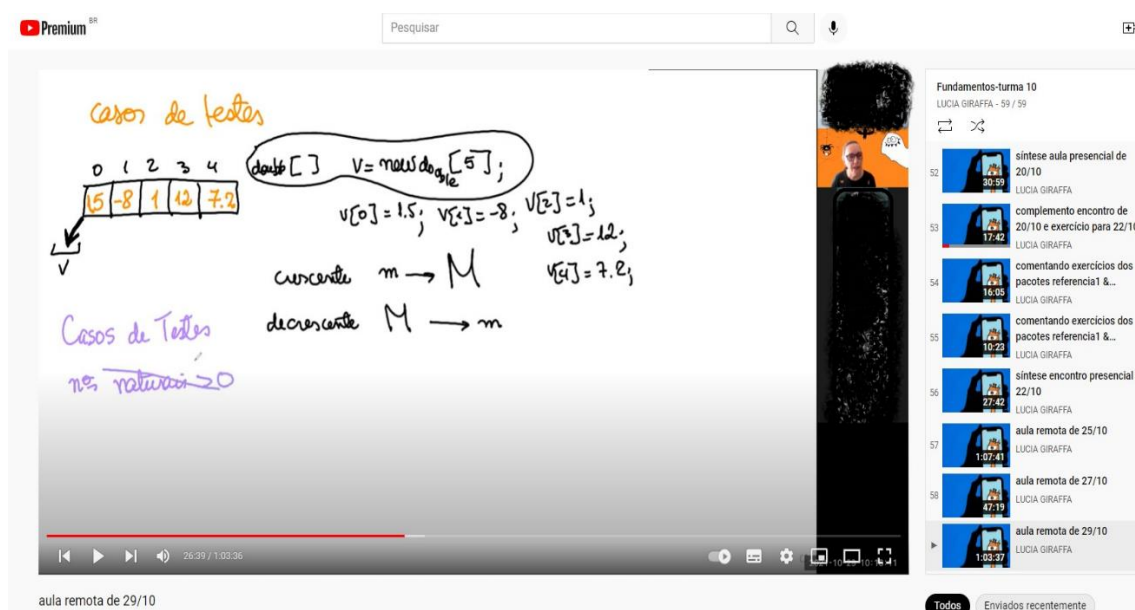 Premium BR
Pesquisar
casos de testes
0 1 2 3 4
1.5 -8 1 12 7.2
V
double [ ] V = new double [5];
V[0] = 1.5; V[1] = -8; V[2] = 1;
V[3] = 12;
V[4] = 7.2;
crescente m → M
decrescente M → m
Casos de Testes
nºs naturais > 0
26:39 / 1:03:36
aula remota de 29/10
Fundamentos-turma 10
LUCIA GIRAFFA - 59 / 59
52
30:59
síntese aula presencial de
20/10
LUCIA GIRAFFA
53
17:42
complemento encontro de
20/10 e exercício para 22/10
LUCIA GIRAFFA
54
16:05
comentando exercícios dos
pacotes referencia1 &...
LUCIA GIRAFFA
55
10:23
comentando exercícios dos
pacotes referencia1 &...
LUCIA GIRAFFA
56
27:42
síntese encontro presencial
22/10
LUCIA GIRAFFA
57
1:07:41
aula remota de 25/10
LUCIA GIRAFFA
58
47:19
aula remota de 27/10
LUCIA GIRAFFA
1:03:37
aula remota de 29/10
LUCIA GIRAFFA
Todos
Enviados recentemente